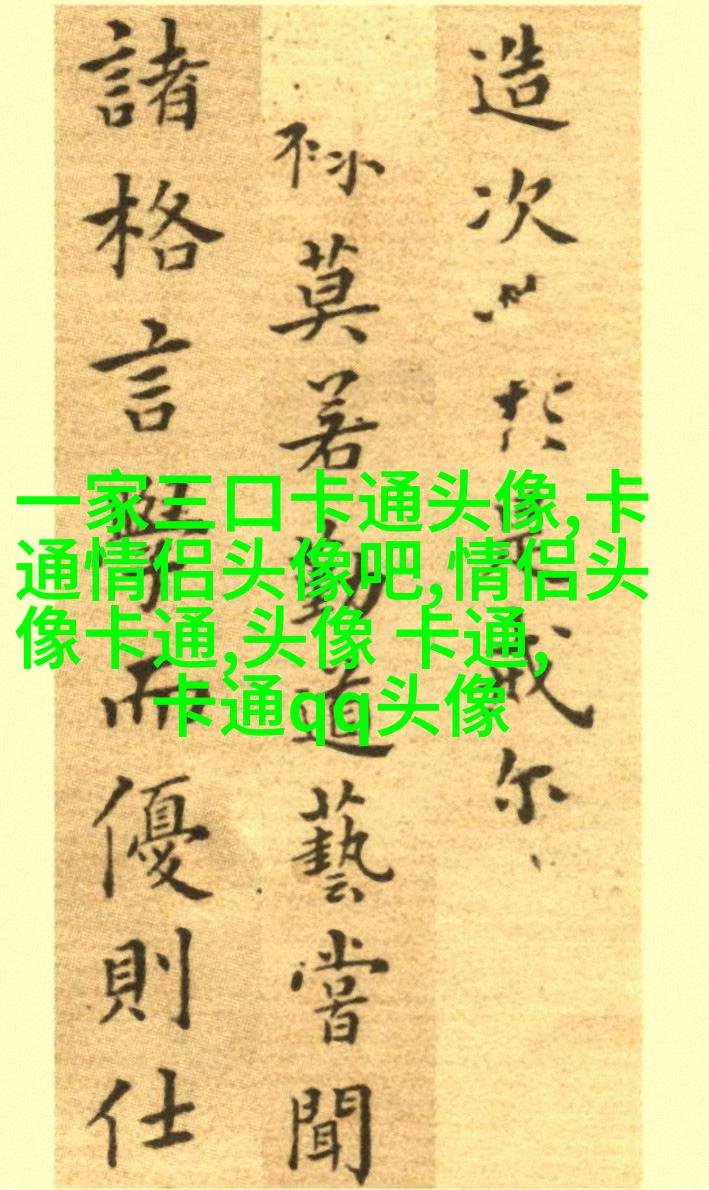 造次於戒尔
莫若勤道藝嘗聞
諸格言學而優則仕
一家三口卡通头像,卡
通情侣头像吧,情侣头
像卡通,头像 卡通,
卡通qq头像